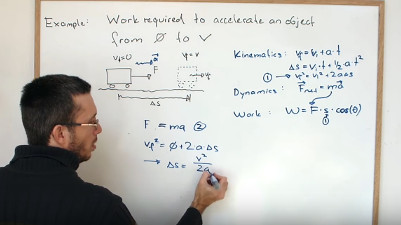 Example: Work required to accelerate an object
from ∅ to v
vi=0
a
F
vf=v
vf
Δs
Kinematics: vf=vi+a·t
Δs=vi·t+1/2·a·t²
① → vf²=vi²+2aΔs
Dynamics: Fnet=ma
Work: W=F·s·cos(θ)
①
F = ma ②
vf²=∅+2·a·Δs
→ Δs= v²/2a